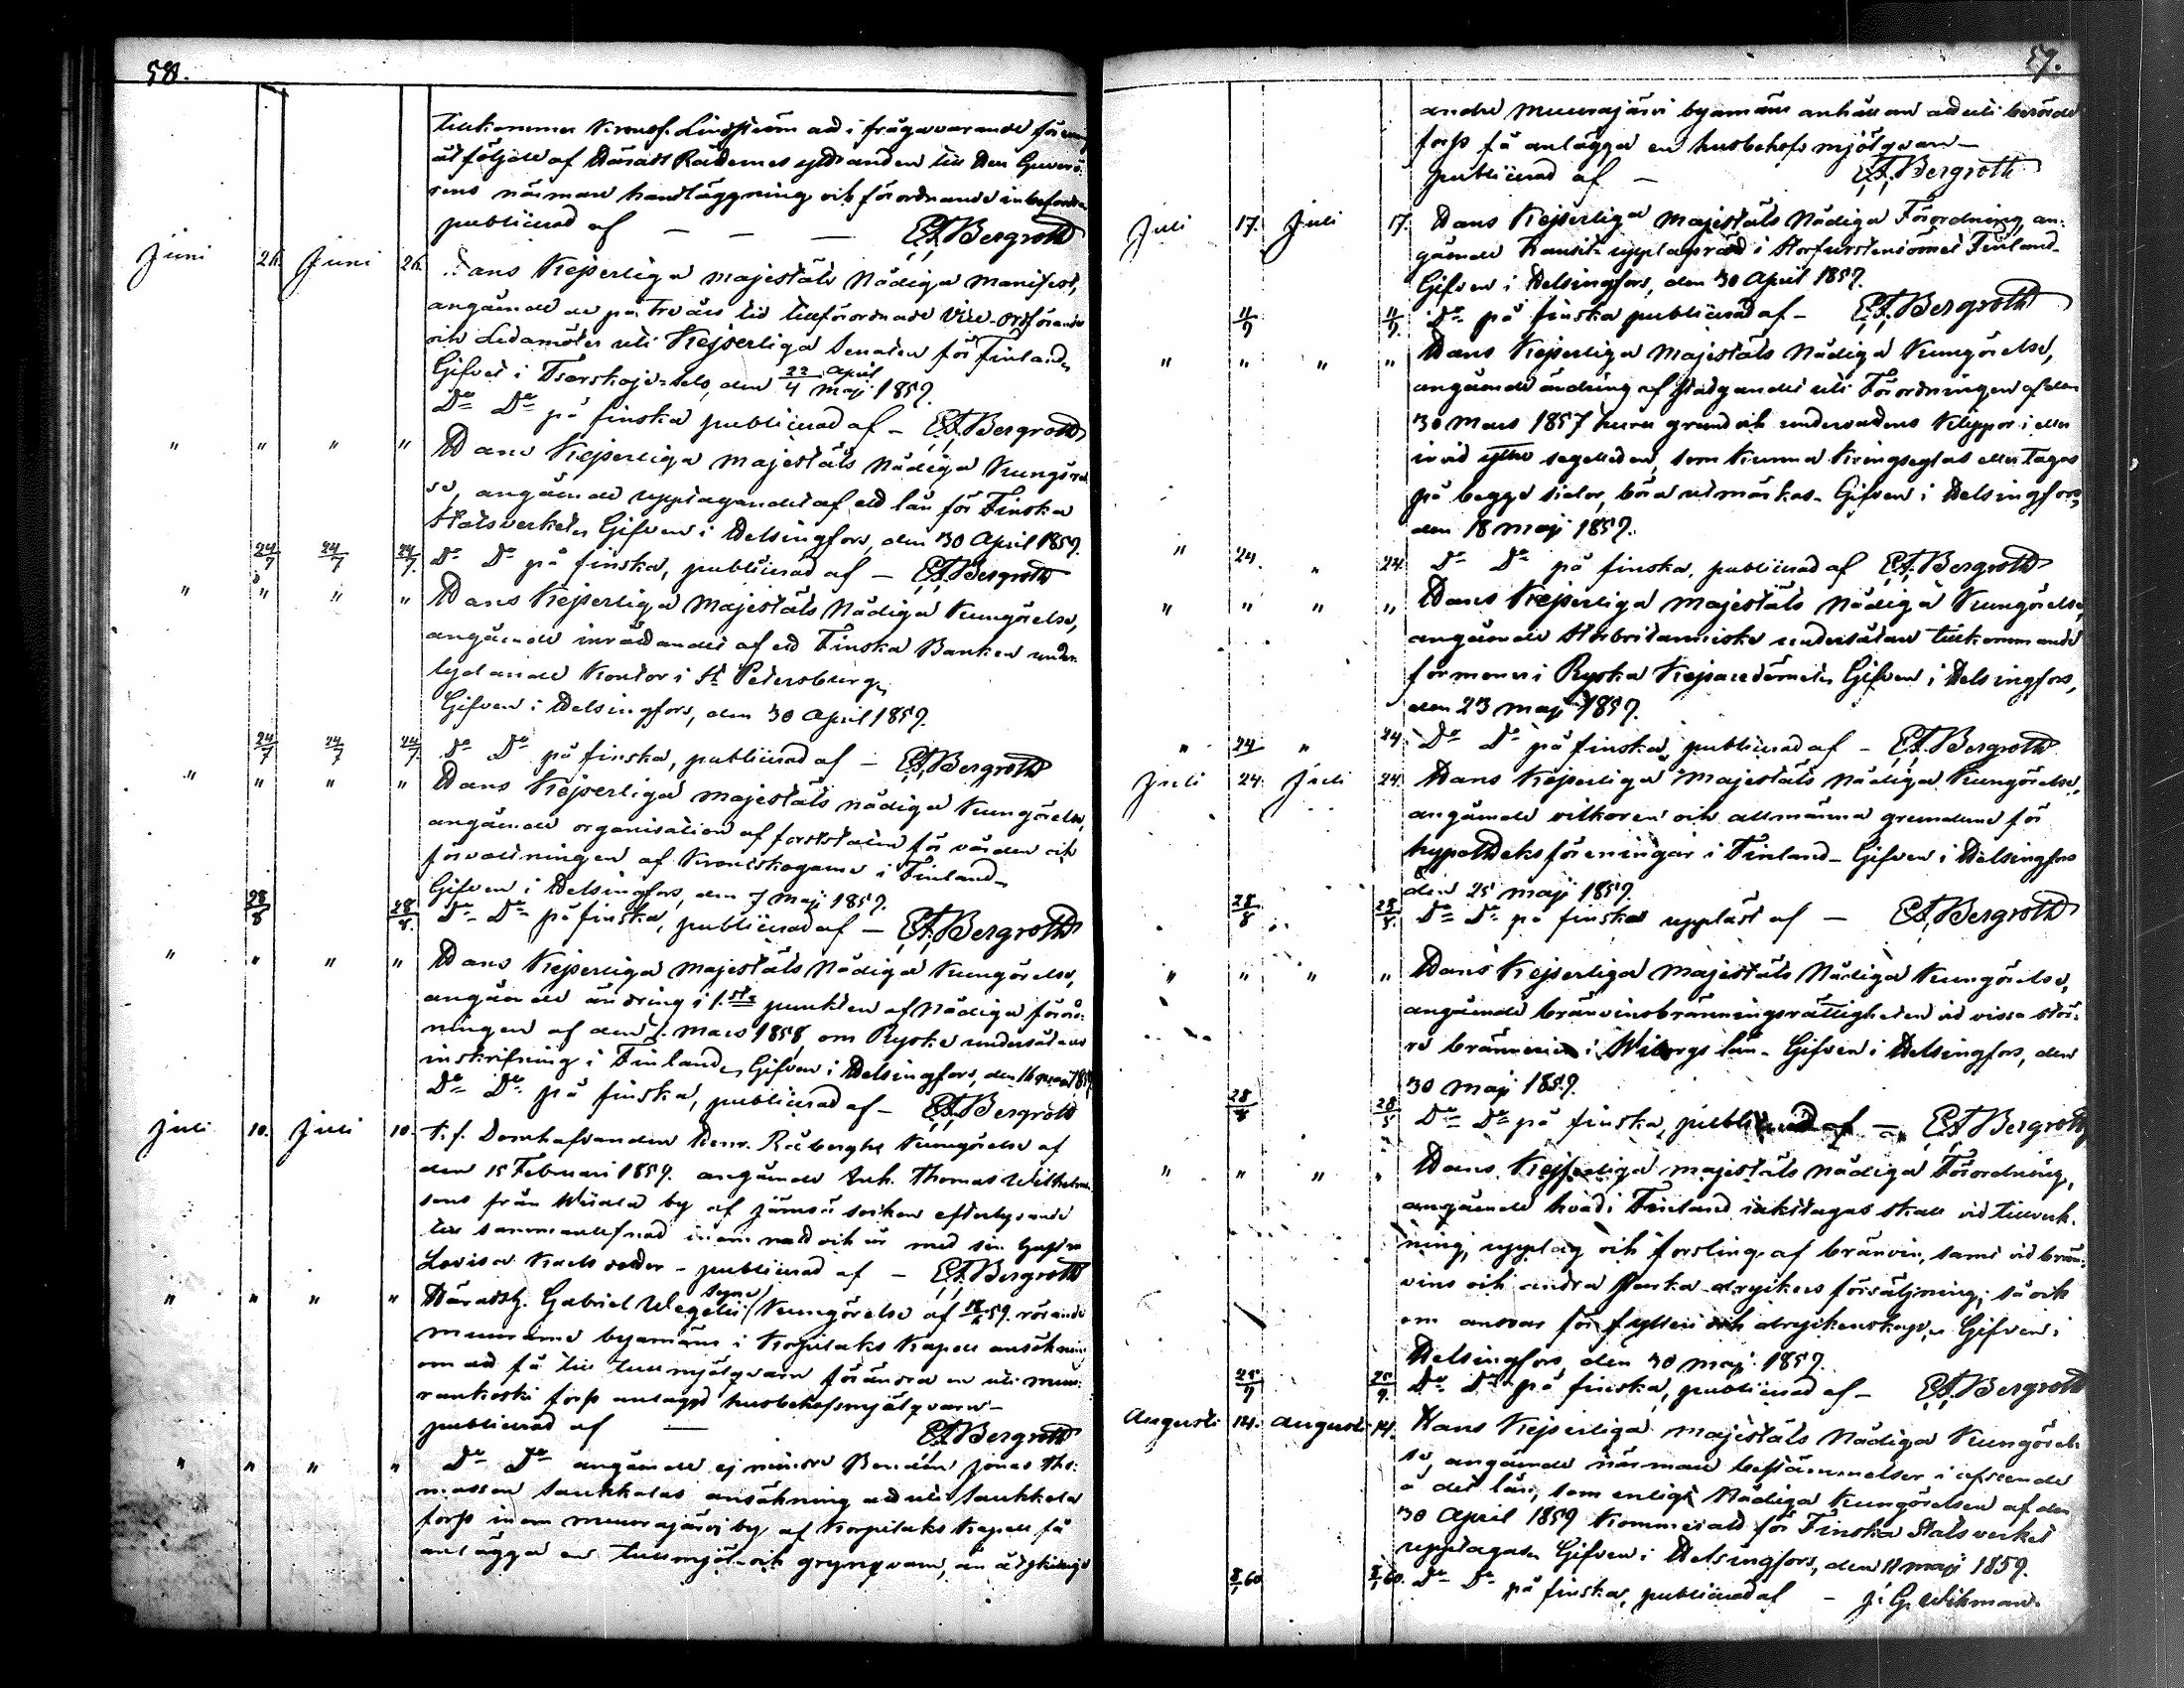 58.
tillkommer Kronof. Lindström att i frågavarande
åtföljde af Härads Rätternes yttranden till Herr Guvernö-
rens närmare handläggning och förordnande inbefordra
publicerad af — — — E.A. Bergroth
Juni 26. Juni 26. Hans Kejserliga Majestäts Nådiga Manifest,
angående de på tre års tid tillförordnade Vice-Ordförande
och Ledamöter uti Kejserliga Senaten för Finland.
Gifvet i Tsarskoje-Selo, den 22 April / 4 Maj 1859.
Do Do på finska publicerad af – E.A. Bergroth
" " " " Hans Kejserliga Majestäts Nådiga Kungörel-
se, angående upptagandet af ett lån för Finska
Statsverket. Gifven i Helsingfors, den 30 April 1859.
24/7 24/7 24/7. Do Do på finska, publicerad af – E.A. Bergroth
" " " " Hans Kejserliga Majestäts Nådiga Kungörelse,
angående inrättandet af ett Finska Banken under-
lydande Kontor i St Petersburg.
Gifven i Helsingfors, den 30 April 1859.
24/7 24/7 24/7. Do Do på finska, publicerad af – E.A. Bergroth
" " " " Hans Kejserliga Majestäts nådiga Kungörelse,
angående organisation af forststaten för vården och
förvaltningen af Kronoskogarne i Finland.
Gifven i Helsingfors, den 7 Maj 1859.
28/8 28/8. Do Do på finska, publicerad af – E.A. Bergroth
" " " " Hans Kejserliga Majestäts Nådiga Kungörelse,
angående ändring i 1.sta punkten af Nådiga förord-
ningen af den Mars 1858 om Ryska undersåtares
inskrifning i Finland. Gifven i Helsingfors, den 16
Do Do på finska, publicerad af – E.A. Bergroth
Juli 10. Juli 10. t.f. Domhafvanden Herr Råberghs Kungörelse af
den 15 Februari 1859. angående Thomas Wilhelms-
sons från by af Jämsä socken efterlysande
till sammanlefnad inom natt och år med sin hustru
Lovisa – publicerad af – E.A. Bergroth
" " " " Häradsh. Gabriel Wegelii Kungörelse af rörande
byamäns i Korpilaks Kapell ansökning
om att få till tullmjölqvarn förändra en uti
fors anlagd husbehofsmjölqvarn –
publicerad af — E.A. Bergroth
" " " " Do Do angående ej mindre Bonden Jonas Tho-
masson Saukkolas ansökning att uti Saukkola
fors inom Muurajärvi by af Korpilaks Kapell få
anlägga en tullmjöl- och grynqvarn, än
59.
andre Muurajärvi byamäns anhållan att uti berörde
fors få anlägga en husbehofs mjölqvarn –
publicerad af — E.A. Bergroth
Juli 17. Juli 17. Hans Kejserliga Majestäts Nådiga Förordning, an-
gående Transit-upplagsrätt i Storfurstendömet Finland.
Gifven i Helsingfors, den 30 April 1859.
11/9 11/9. Do på finska publicerad af – E.A. Bergroth
" " " " Hans Kejserliga Majestäts Nådiga Kungörelse,
angående ändring af stadgandet uti Förordningen af den
30 Mars 1857 huru grund och undervattens Klippor i eller
invid yttre segelleden, som kunna kringseglas eller tagas
på begge sidor, böra utmärkas. Gifven i Helsingfors,
den 18 Maj 1859.
" 24. " 24. Do Do på finska, publicerad af E.A. Bergroth
" " " " Hans Kejserliga Majestäts Nådiga Kungörelse,
angående Storbritanniske undersåtare tillkommande
förmoner i Ryska Kejsaredömet. Gifven i Helsingfors,
den 23 Maj 1859.
" 24 " 24. Do Do på finska, publicerad af – E.A. Bergroth
Juli 24. Juli 24. Hans Kejserliga Majestäts Nådiga Kungörelse,
angående vilkoren och allmänna grunderne för
hypotheksföreningar i Finland – Gifven i Helsingfors
den 25 Maj 1859.
28/8 28/8. Do Do på finska uppläst af – E.A. Bergroth
" " " " Hans Kejserliga Majestäts Nådiga Kungörelse,
angående bränvinsbränningsrättigheten vid vissa stör-
re brännerier i Wiborgs län. Gifven i Helsingfors, den
30 Maj 1859.
28/8 28/8 Do Do på finska, publicerad af – E.A. Bergroth
" " " " Hans Kejserliga Majestäts Nådiga Förordning,
angående hvad i Finland iakttagas skall vid tillverk-
ning, upplag och forsling af bränvin, samt vid brän-
vins och andra starka dryckers försäljning; så och
om ansvar för fylleri och dryckenskap. Gifven i
Helsingfors, den 30 Maj 1859.
25/9 25/9. Do Do på finska, publicerad af – E.A. Bergroth
Augusti 14. Augusti 14. Hans Kejserliga Majestäts Nådiga Kungörel-
se, angående närmare bestämmelser i afseende
å det lån, som enligt Nådiga Kungörelsen af den
30 April 1859 kommer att för Finska Statsverket
upptagas. Gifven i Helsingfors, den 11 Maj 1859.
8/1 60 8/1 60. Do Do på finska, publicerad af – J. G. Wikman.